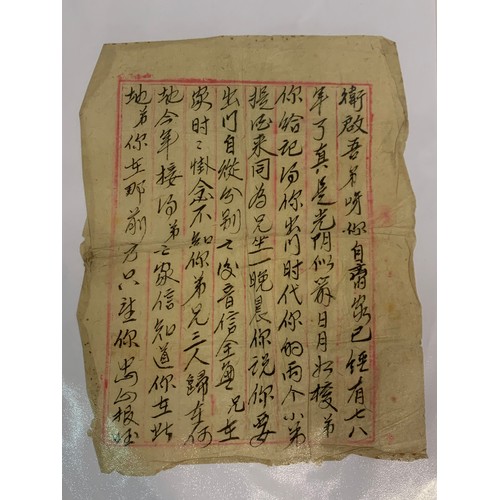 衛啟吾弟呀你自离家已経有七八
年了真是光阴似箭日月如梭弟
你给記淂你出门时代你的两个小弟
提酒来同為兄坐一晚晨你説你要
出门自従分别之後音信全無兄在
家时〻掛念不知你弟兄三人歸在何
地今年接淂弟之家信知道你在此
地弟你在那前方只望你